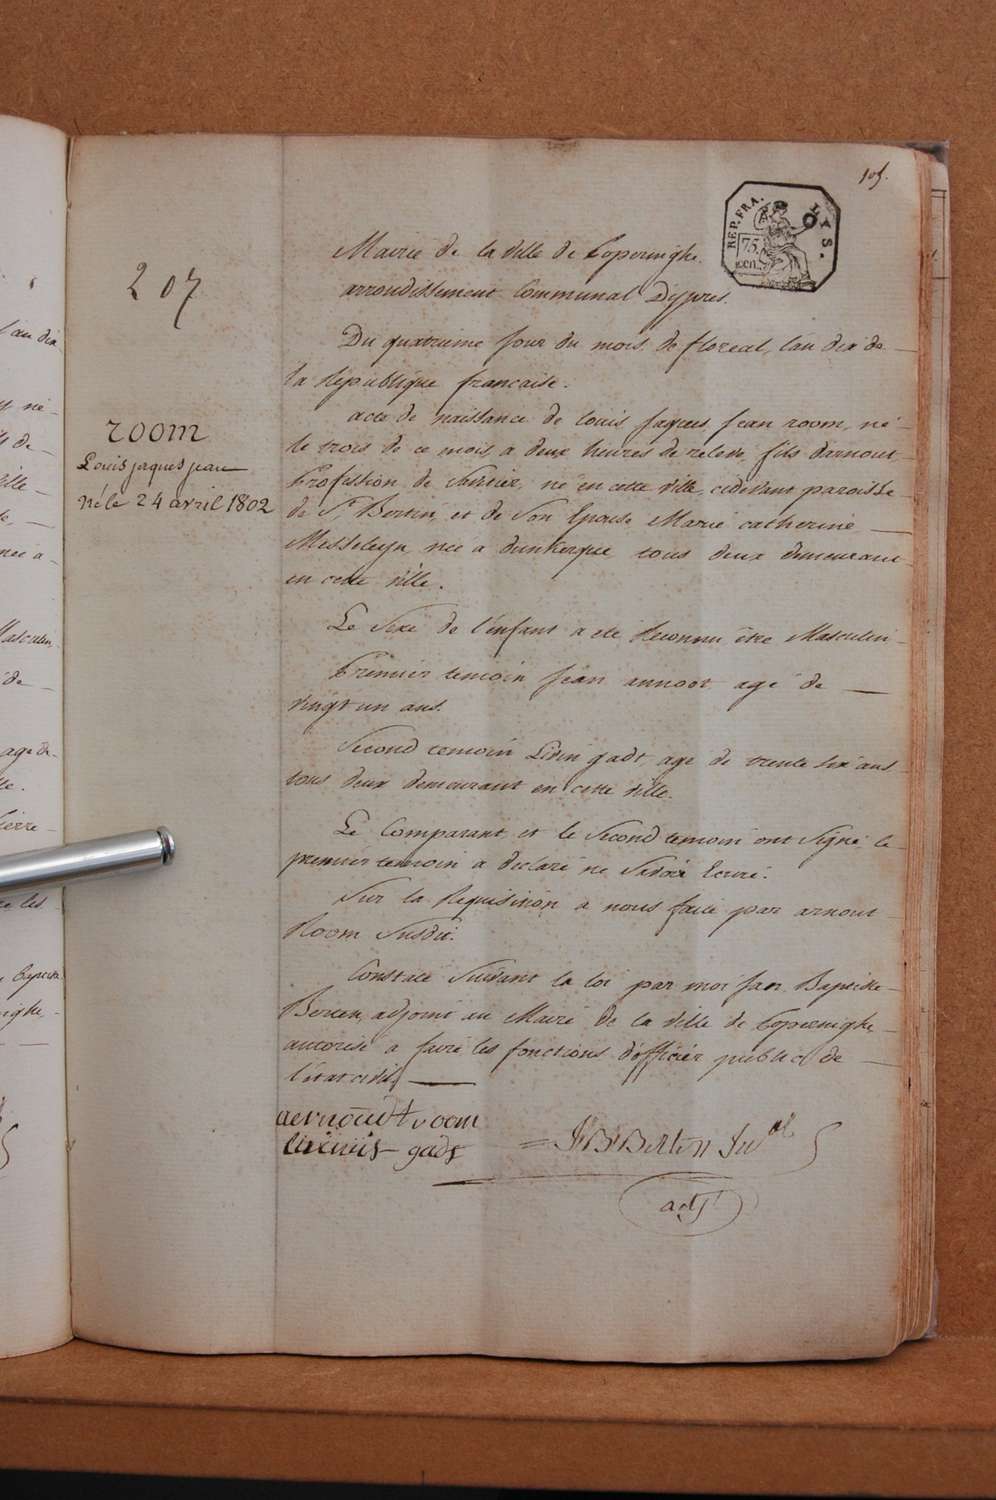 105.
REP. FRA.
LYS.
75.
CEN.
207
Mairie de la ville de Poperinghe
arrondissement Communal D'ypres.
Du quatrieme jour du mois de floreal, l'an dix de
la République francaise.
acte de naissance de louis jaques jean room, né
le trois de ce mois a deux heures de relevé, fils darnout
Profession de Sautier, né en cette ville, cidevant paroisse
de St Bertin, et de Son Epouse Marie catherine
Messeleyn née a dunkerque tous deux demeurant
en cette ville.
room
Louis jaques jean
né le 24 avril 1802
Le Sexe de l'enfant a eté Reconnu être Masculin
Premier temoin jean annoot agé de
vingt un ans.
Second temoin Livin gadt, agé de trente six ans
tous deux demeurant en cette ville.
Le Comparant et le Second temoin ont Signé le
premier temoin a declaré ne Savoir Ecrire.
Sur la Requisition a nous faite par arnout
Room Susdit.
Constaté Suivant la loi par moi jan Baptiste
Berten, adjoint au Maire de la ville de Poperinghe,
autorisé a faire les fonctions d'officier public de
l'état civil
aernoudt room
livinis gads
J B Berten
adjt
l'an dix
né
de
ville
née a
Masculin
de
agé de
Pierre
les